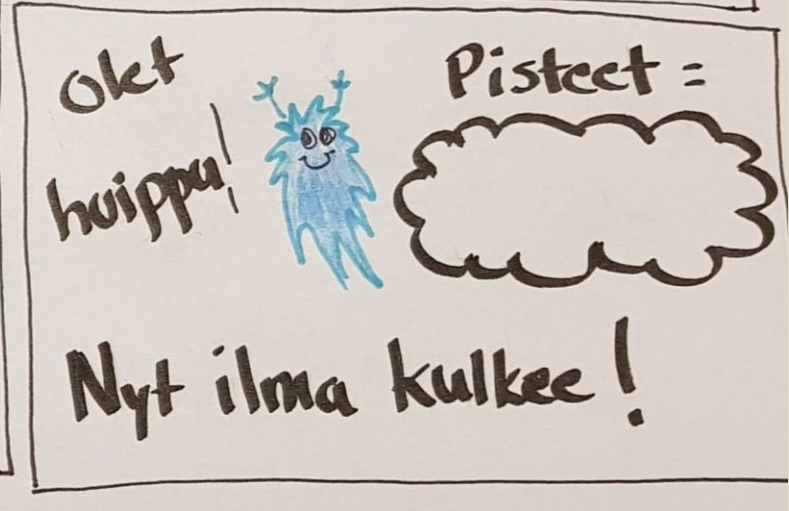 Olet
huippu!
Pisteet =
Nyt ilma kulkee!